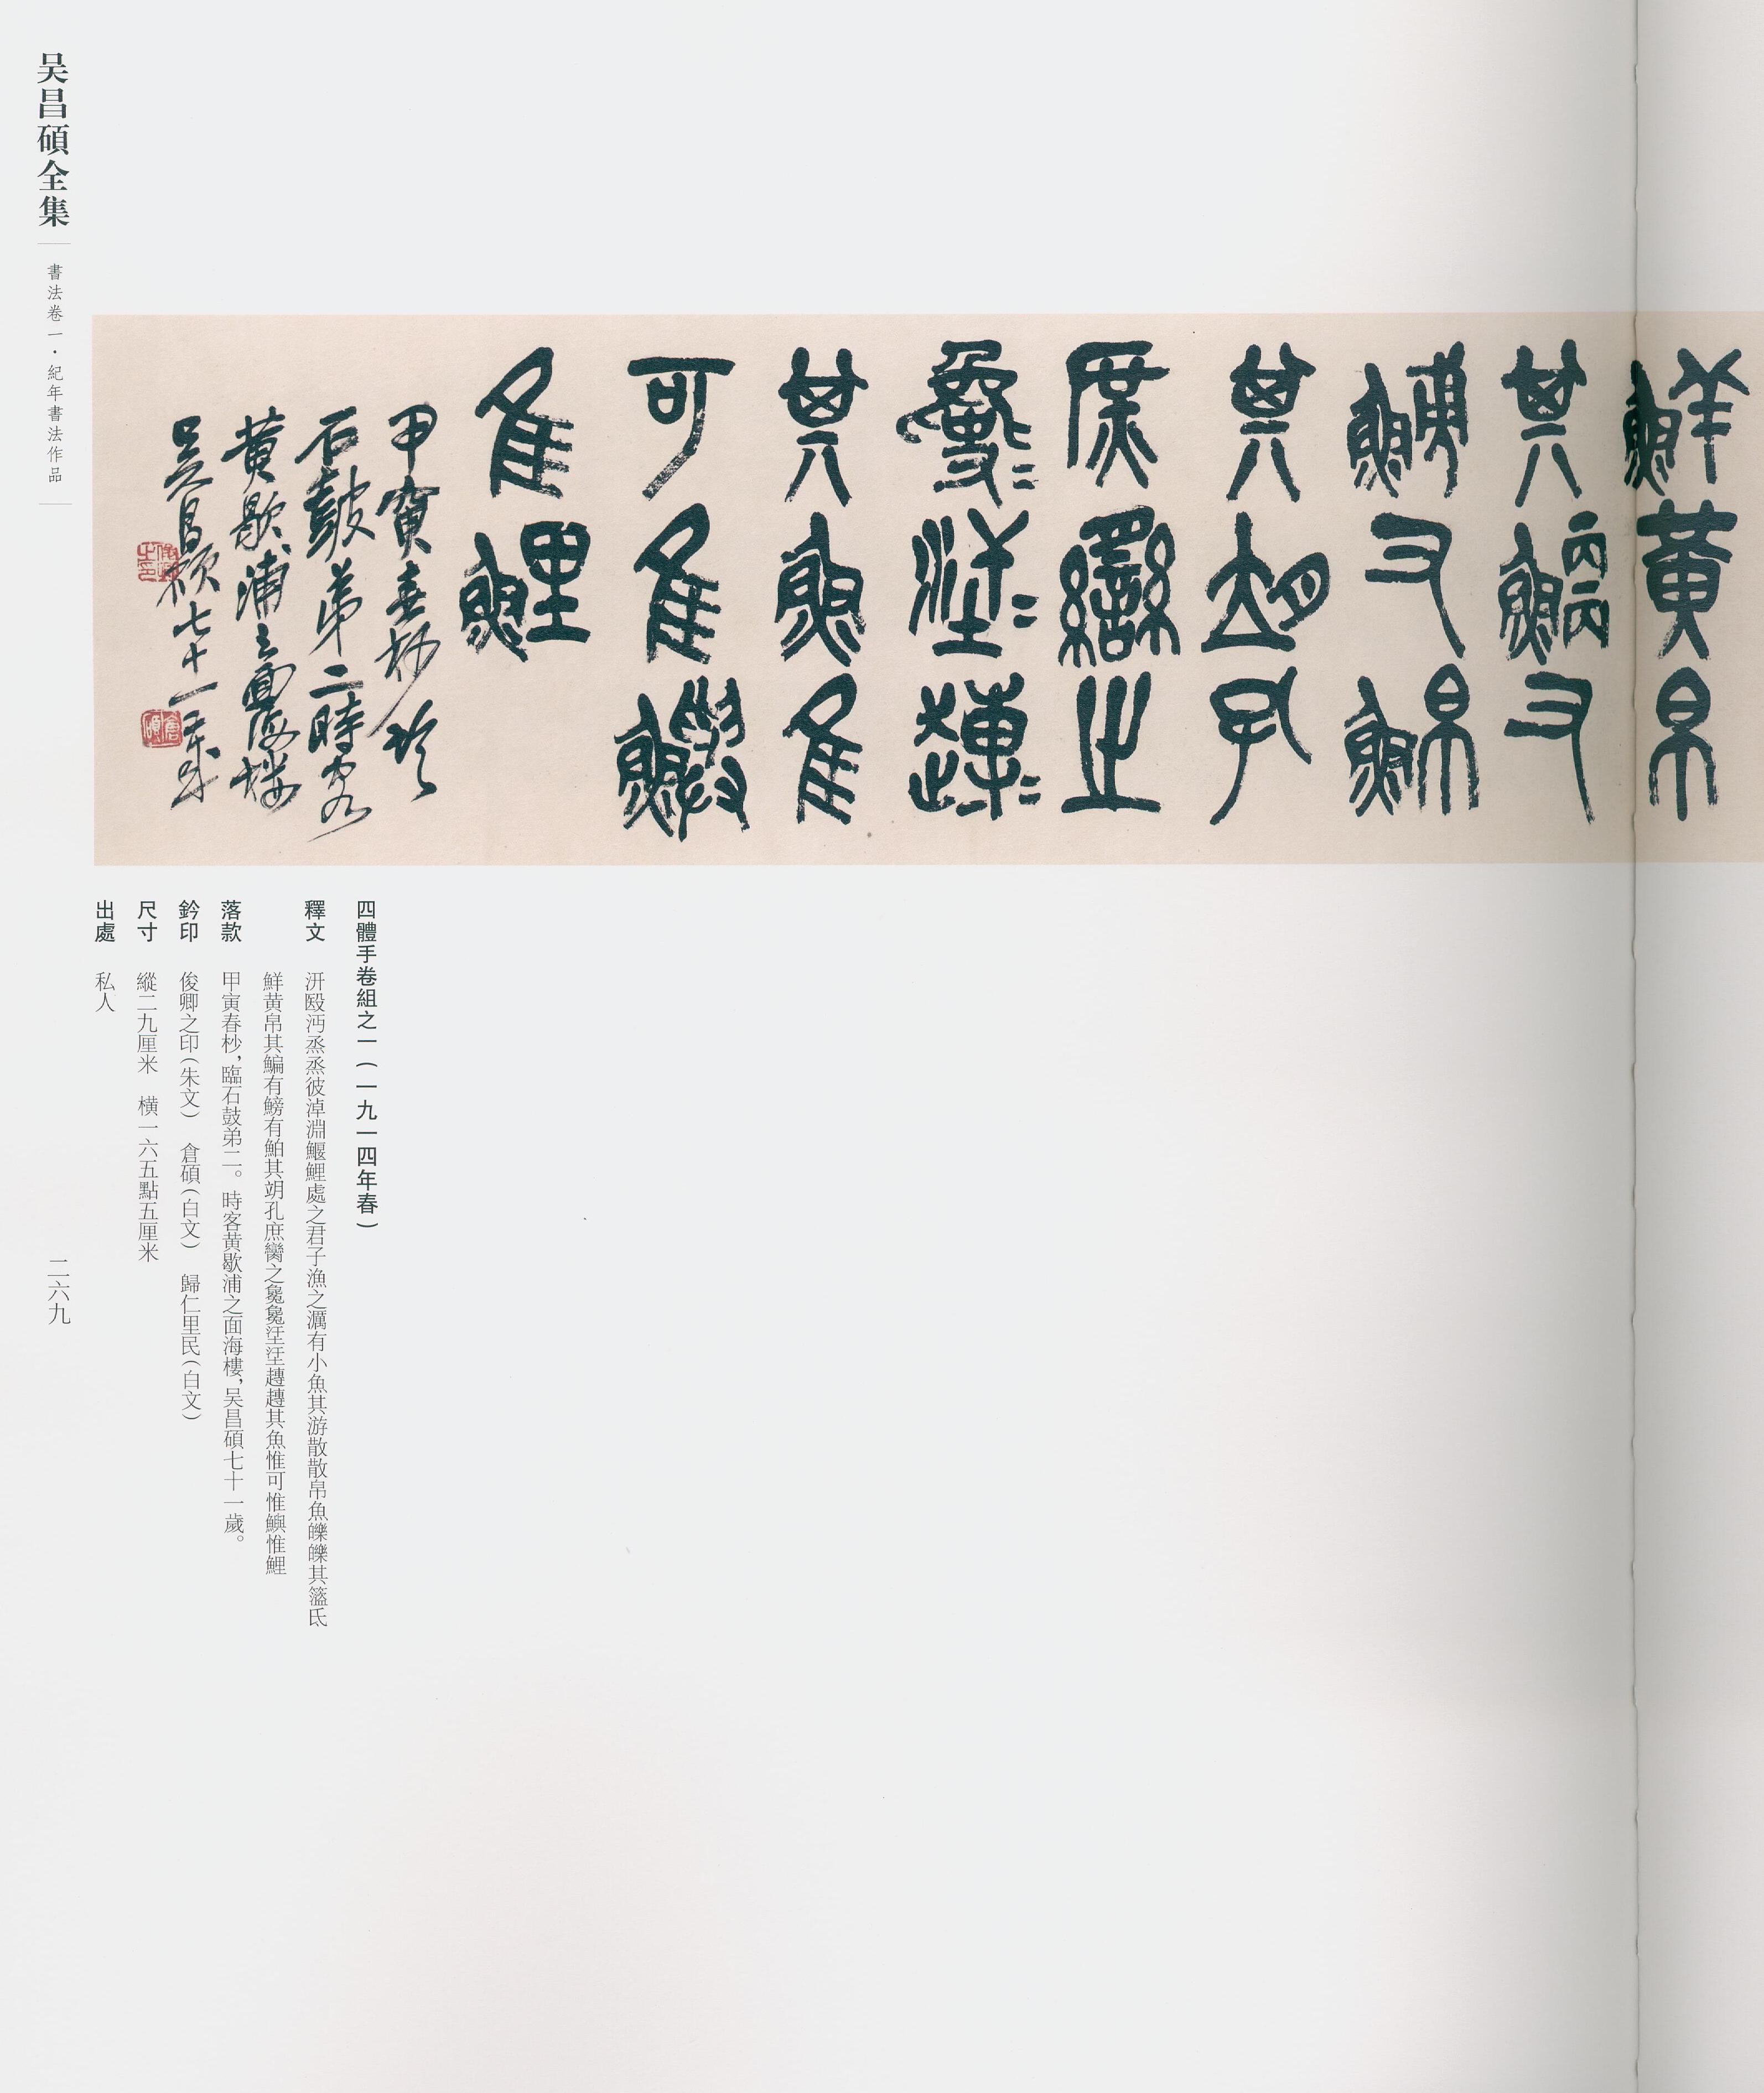 鮮黃帛
其鯾又
鱄又鮊
其𦚞孔
庶臠之
𪚕＝汪＝趨＝
其魚隹
可隹鱮
隹鯉
甲寅春杪臨
石鼓弟二時客
黃歇浦之面海樓
吴昌碩七十一歲
俊卿之印
倉碩
四體手卷組之一（一九一四年春）
釋文 汧殹沔烝烝彼淖淵鰋鯉處之君子漁之澫有小魚其游散散帛魚皪皪其盗氐
鮮黃帛其鯿有鰟有鮊其胡孔庶臠之𪚕𪚕汪汪趨趨其魚惟可惟鱮惟鯉
落款 甲寅春杪，臨石鼓弟二。時客黃歇浦之面海樓，吴昌碩七十一歲。
鈐印 俊卿之印（朱文） 倉碩（白文） 歸仁里民（白文）
尺寸 縱二九厘米 橫一六五點五厘米
出處 私人
吴昌碩全集
書法卷一·紀年書法作品
二六九